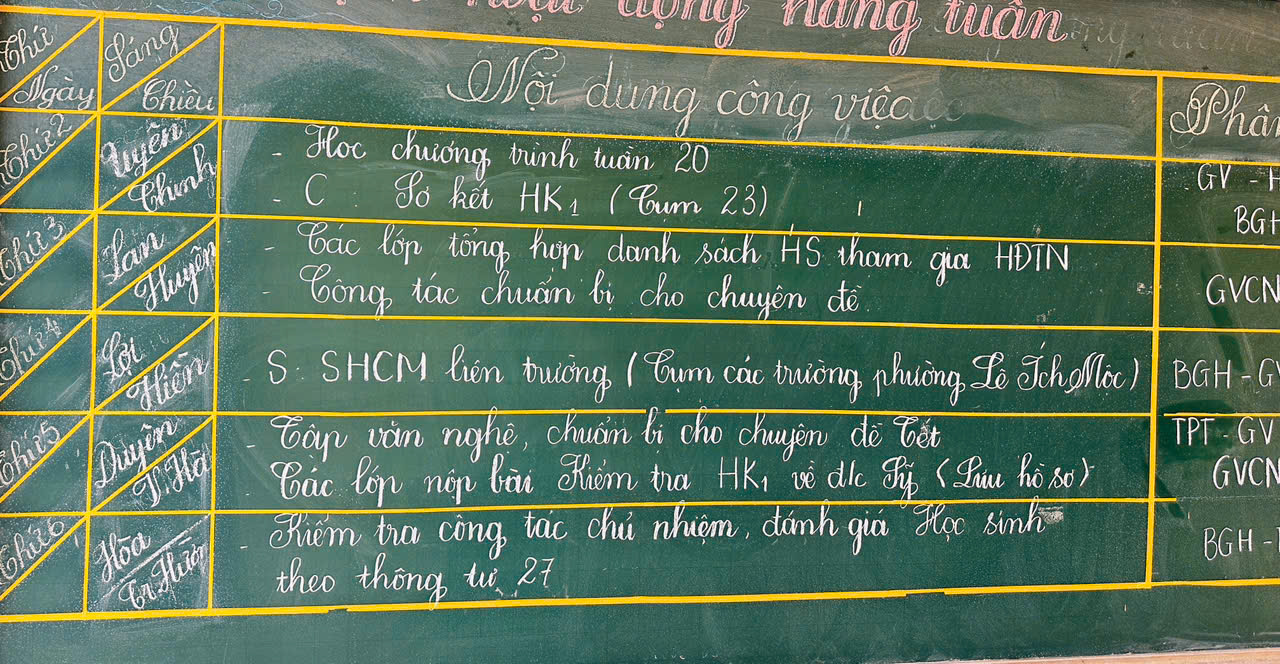 hoạt động hàng tuần
Thứ Ngày Sáng Chiều Nội dung công việc Phân
Thứ 2 Uyên Chinh
- Học chương trình tuần 20 GV - H
- C : Sơ kết HK1 (Cụm 23) BGH
Thứ 3 Lan Huyên
- Các lớp tổng hợp danh sách HS tham gia HĐTN
- Công tác chuẩn bị cho chuyên đề GVCN
Thứ 4 Lợi Hiền
- S: SHCM liên trường (Cụm các trường phường Lê Ích Mộc) BGH - GV
Thứ 5 Duyên T.Hà
- Tập văn nghệ, chuẩn bị cho chuyên đề Tết TPT - GV
- Các lớp nộp bài Kiểm tra HK1 về đ/c Mỹ (Lưu hồ sơ) GVCN
Thứ 6 Hòa
- Kiểm tra công tác chủ nhiệm, đánh giá Học sinh
theo thông tư 27 BGH -